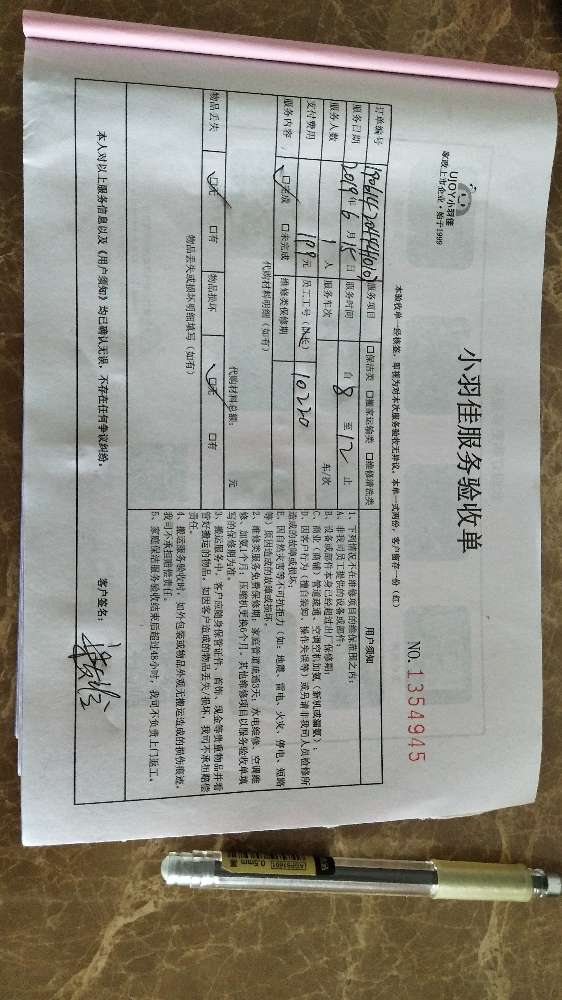 UJOY小羽佳
家政上市企业·始于1999
小羽佳服务验收单
NO. 1354945
本验收单一经核签，即视为对本次服务验收无异议。本单一式两份，客户留存一份（联）
订单编号 服务项目 □保洁类 □搬家运输类 □维修清洗类
服务日期 2019年6月15日 服务时间 自8至12止
服务人数 1人 服务车次 车/次
支付费用 199元 员工工号（队长） 10220
服务内容： ☑完成 □未完成 维修类保修期
代购材料明细（如有）
代购材料总额： 元
物品丢失 ☑无 □有 物品损坏 ☑无 □有
物品丢失或损坏明细填写（如有）
用户须知
1、下列情况不在维修项目的担保范围之内：
A、非我司员工提供的设备或部件；
B、设备或部件本身已经超过出厂保修期；
C、商业（商铺）管道疏通、空调空机加氨（新机或漏氨）；
D、因客户行为（擅自装卸、操作失误等）或另请非我司人员检修所
造成的故障或损坏。
E、因自然灾害等不可抗拒力（如：地震、雷电、火灾、停电、短路
等）原因造成的故障或损坏。
2、维修类服务免费保修期：家庭管道疏通3天，水电维修、空调维
修、加氨1个月；压缩机更换6个月，其他维修项目以服务验收单填
写的保修期为准。
3、搬运服务中，客户应随身保管证件、首饰、现金等贵重物品并看
管好搬运的物品，如因客户造成的物品丢失/损坏，我司不承担赔偿
责任。
4、搬运服务验收时，如外包装或物品外观无搬运造成的损伤痕迹，
我司不承担赔偿责任。
5、家庭保洁服务验收结束后超过48小时，我司不负责上门返工。
本人对以上服务信息以及《用户须知》均已确认无误，不存在任何争议纠纷。
客户签名：
0.5mm